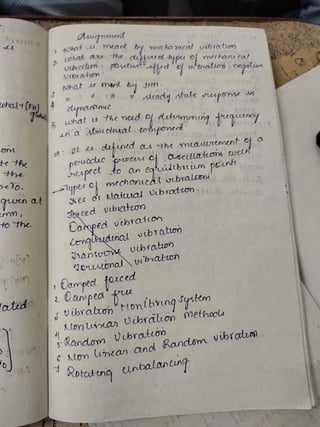 Assignment
1 What is meant by mechanical vibration
2 what are the different types of mechanical
vibration. positive effect of vibration, negative
vibration
3 what is meant by SHM.
4 " " " " steady state response in
dynamic
5 what is the need of determining frequency
in a structural component
It is defined as the measurement of a
periodic process of oscillations with
respect to an equilibrium point.
Types of mechanical vibrations
Free or Natural vibration
Forced vibration
Damped vibration
Longitudinal vibration
Transverse vibration
Torsional vibration
1 Damped forced
2 Damped free
3 Vibration Monitiring System
4 Non linear Vibration Methods
5 Random Vibration
6 Non linear and Random vibration
7 Rotating Unbalancing